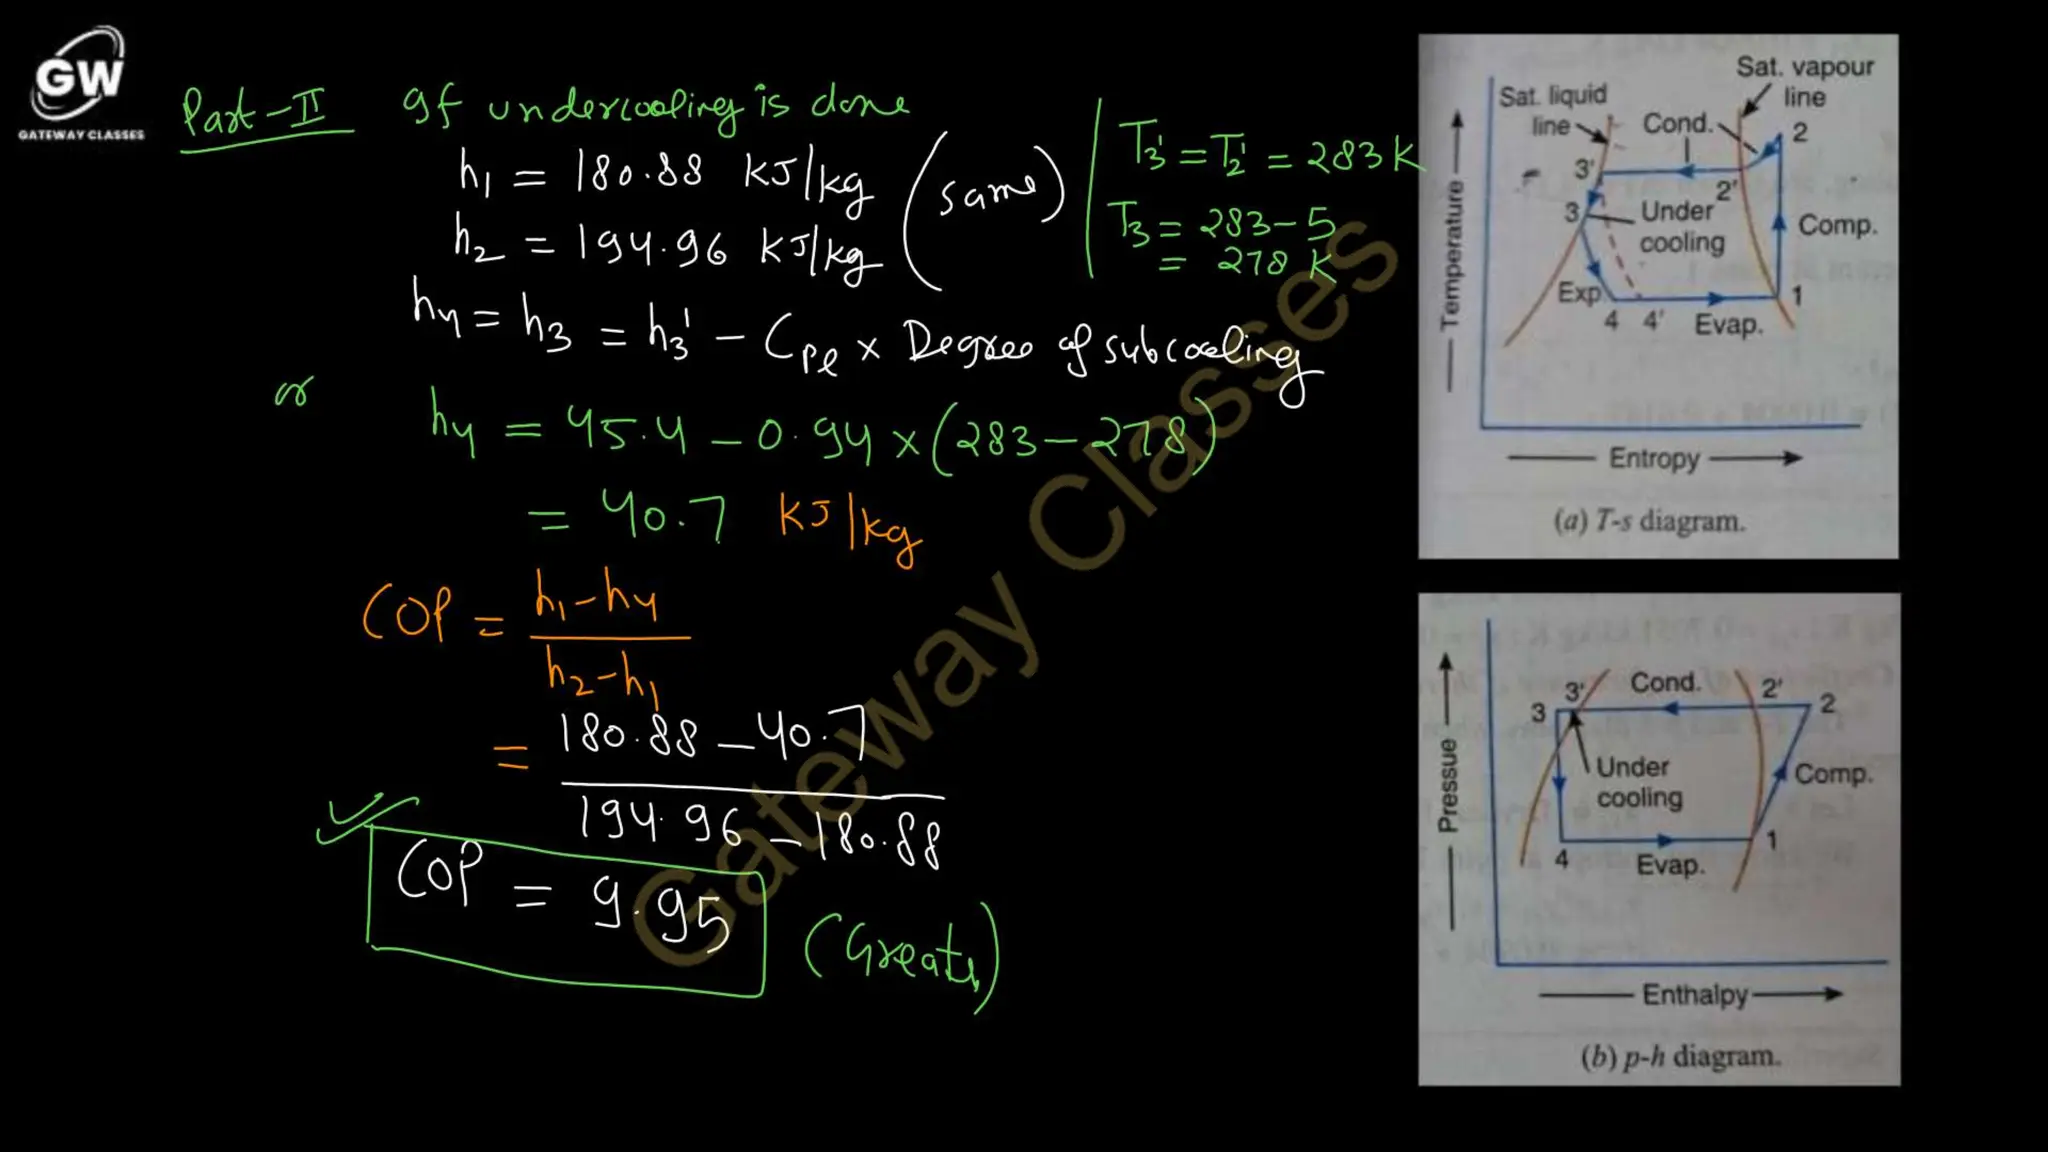 GW
GATEWAY CLASSES
Part-II If undercooling is done
h1 = 180.88 KJ/kg
h2 = 194.96 KJ/kg
(same)
T3' = T2' = 283 K
T3 = 283-5
= 278 K
h4 = h3 = h3' - Cpl × Degree of subcooling
or
h4 = 45.4 - 0.94 × (283-278)
= 40.7 KJ/kg
COP = h1-h4
h2-h1
= 180.88 - 40.7
194.96 - 180.88
COP = 9.95
(Greater)
Gateway Classes
Sat. vapour
line
Sat. liquid
line
Cond.
2
3'
2'
3
Under
cooling
Comp.
Exp.
1
4 4' Evap.
Temperature
Entropy
(a) T-s diagram.
3' Cond. 2'
3 2
Under
cooling
Comp.
4 Evap. 1
Pressue
Enthalpy
(b) p-h diagram.